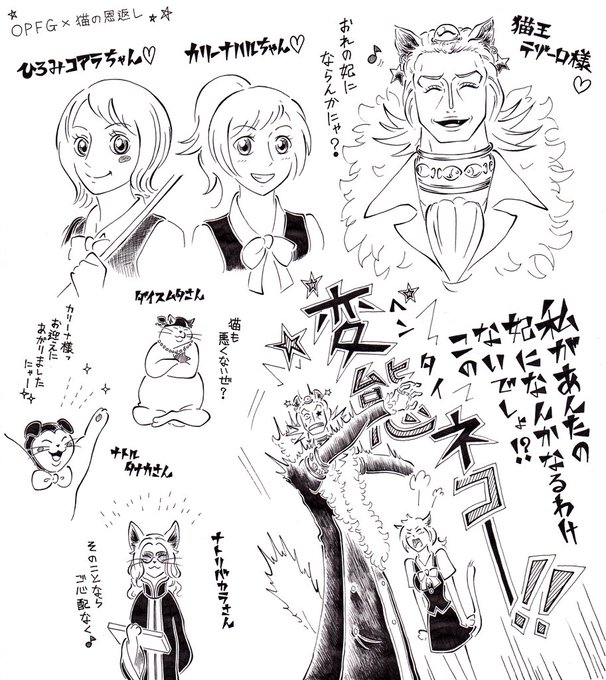 OPFG×猫の恩返し
ひろみコアラちゃん♡
カリーナハルちゃん♡
猫王
テゾーロ様♡
おれの妃に
ならんかにゃ?♪
ダイスムタさん
猫も
悪くないぜ?
カリーナ様っ
お迎えに
あがりました
にゃー
ナトル
タナカさん
ナトリバカラさん
そのことなら
ご心配なく♪
私があんたの
妃になんかなるわけ
ないでしょ!?
この
変態
ヘンタイ
ネコー!!